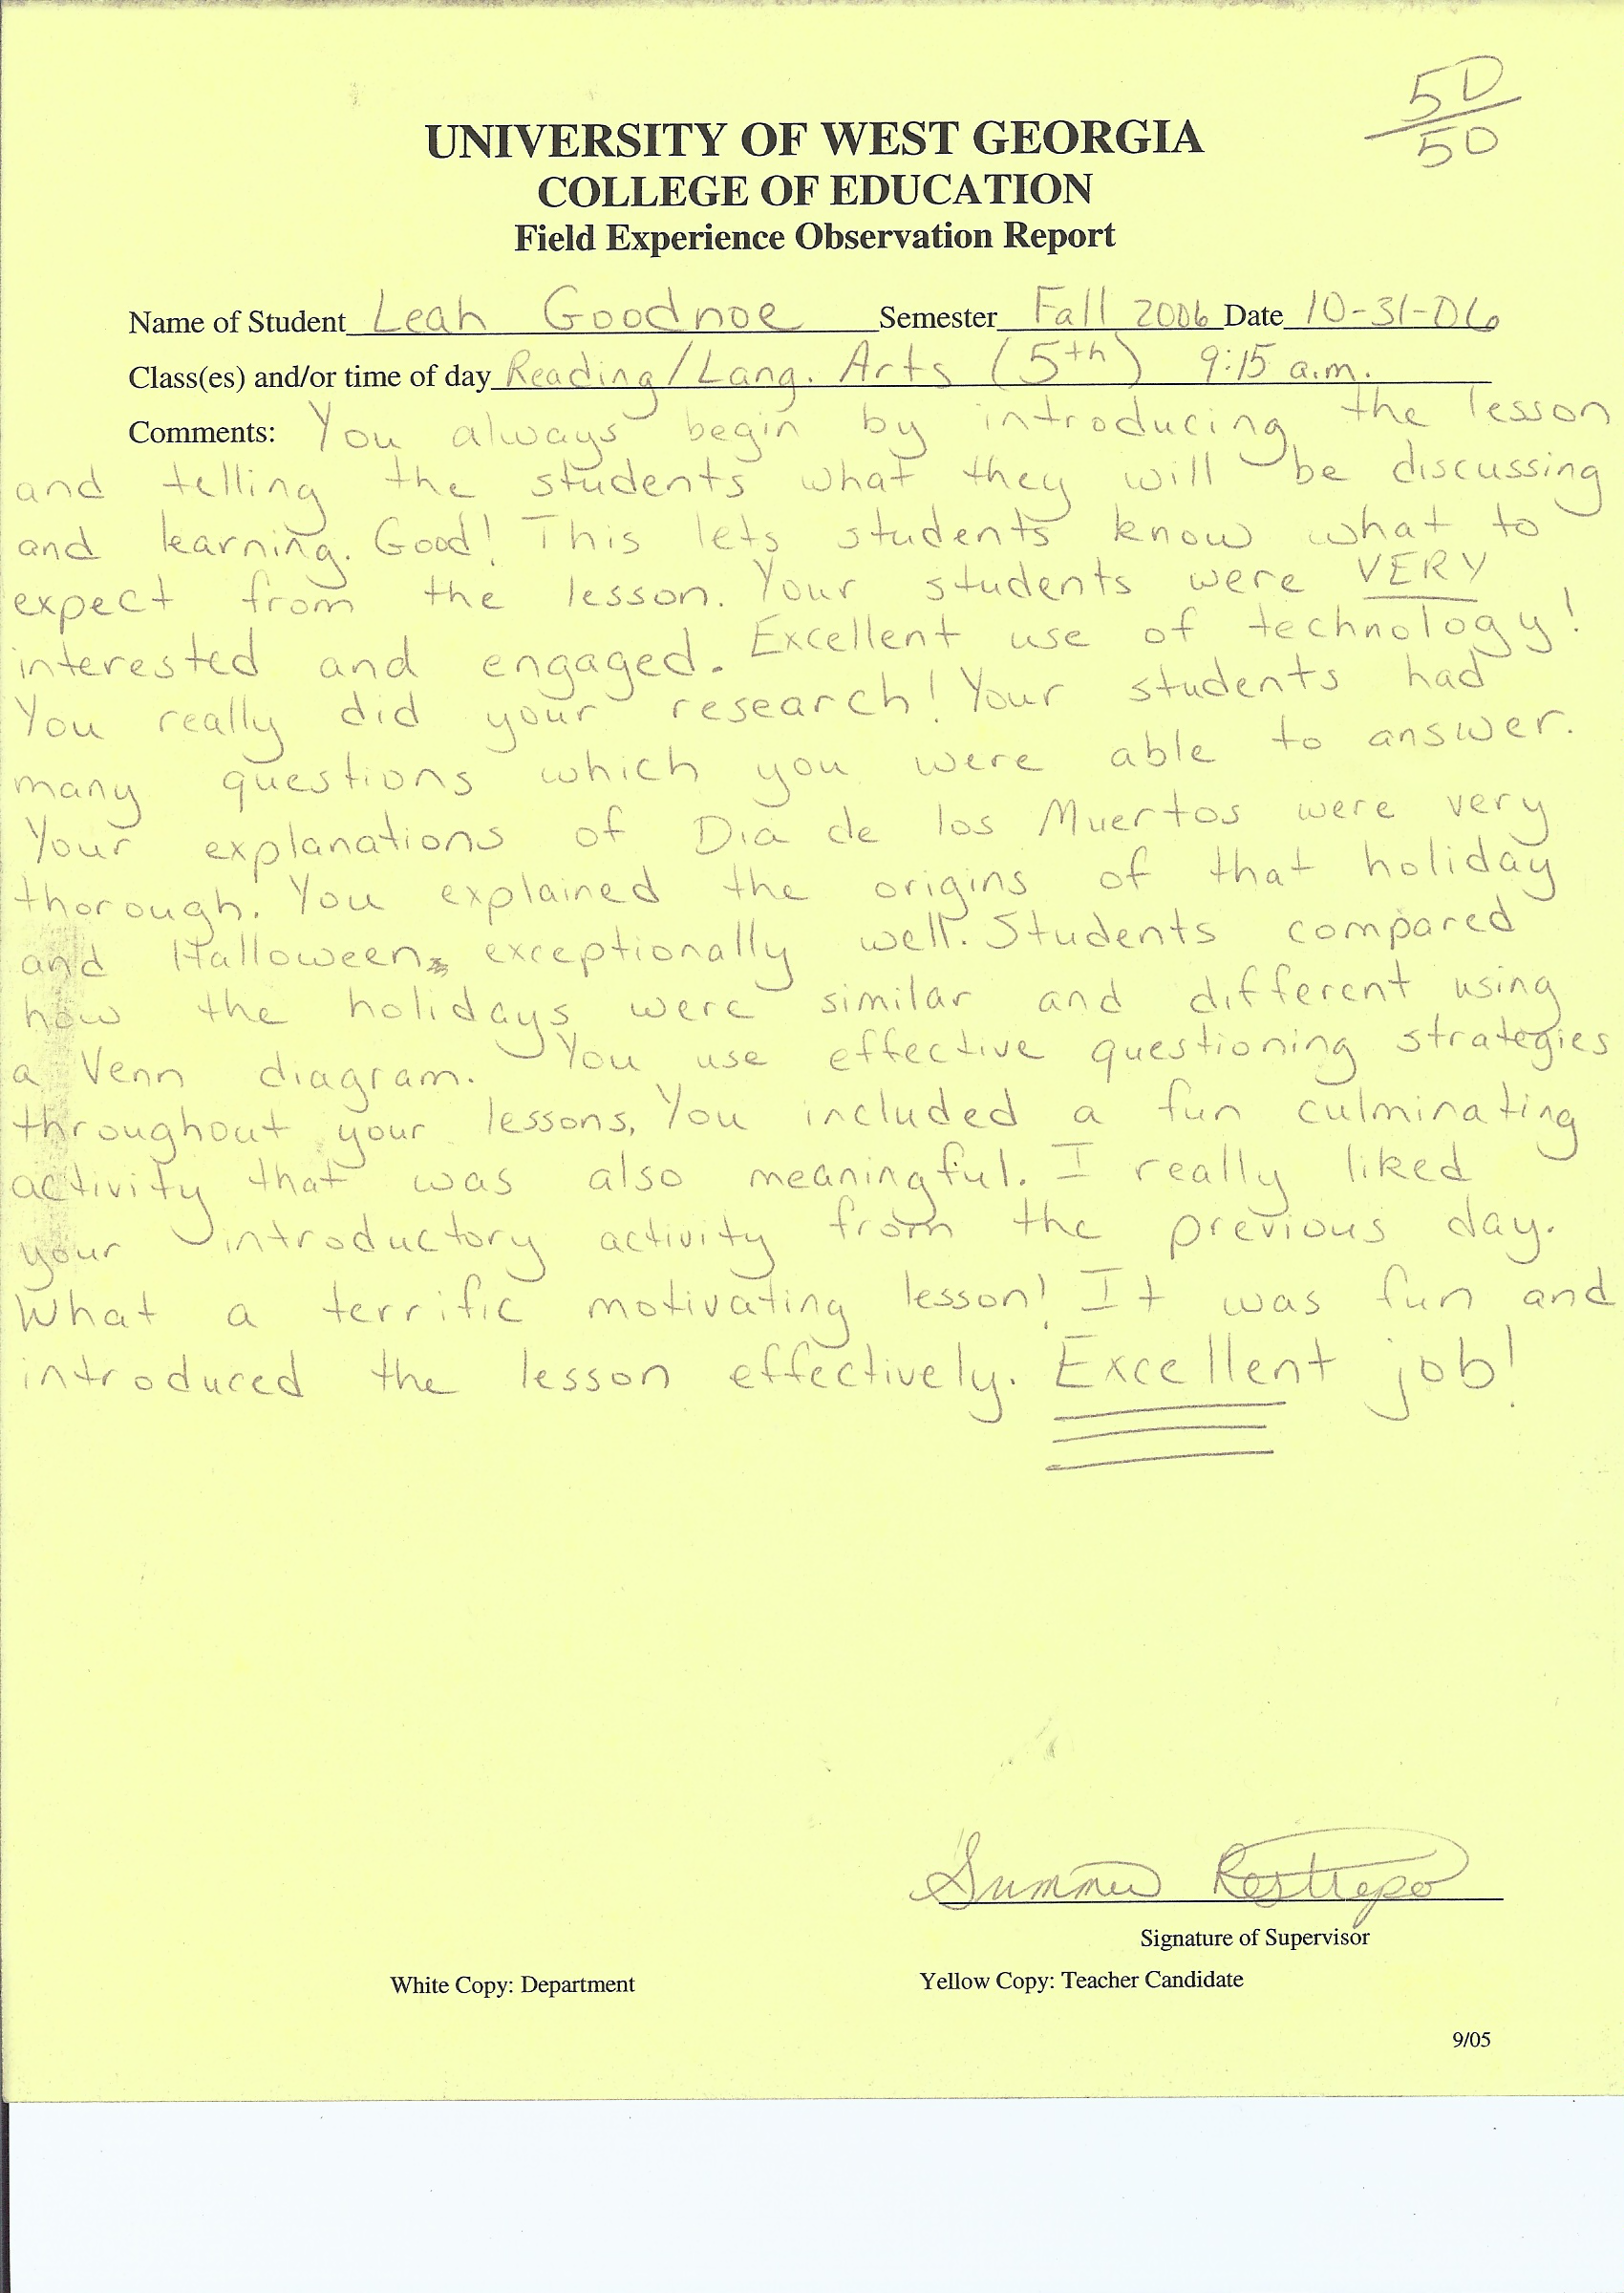 50
50
UNIVERSITY OF WEST GEORGIA
COLLEGE OF EDUCATION
Field Experience Observation Report
Name of Student Leah Goodnoe Semester Fall 2006 Date 10-31-06
Class(es) and/or time of day Reading/Lang. Arts (5th) 9:15 a.m.
Comments: You always begin by introducing the lesson
and telling the students what they will be discussing
and learning. Good! This lets students know what to
expect from the lesson. Your students were VERY
interested and engaged. Excellent use of technology!
You really did your research! Your students had
many questions which you were able to answer.
Your explanations of Dia de los Muertos were very
thorough. You explained the origins of that holiday
and Halloween exceptionally well. Students compared
how the holidays were similar and different using
a Venn diagram. You use effective questioning strategies
throughout your lessons. You included a fun culminating
activity that was also meaningful. I really liked
your introductory activity from the previous day.
What a terrific motivating lesson! It was fun and
introduced the lesson effectively. Excellent job!
Summer Restrepo
Signature of Supervisor
White Copy: Department Yellow Copy: Teacher Candidate
9/05